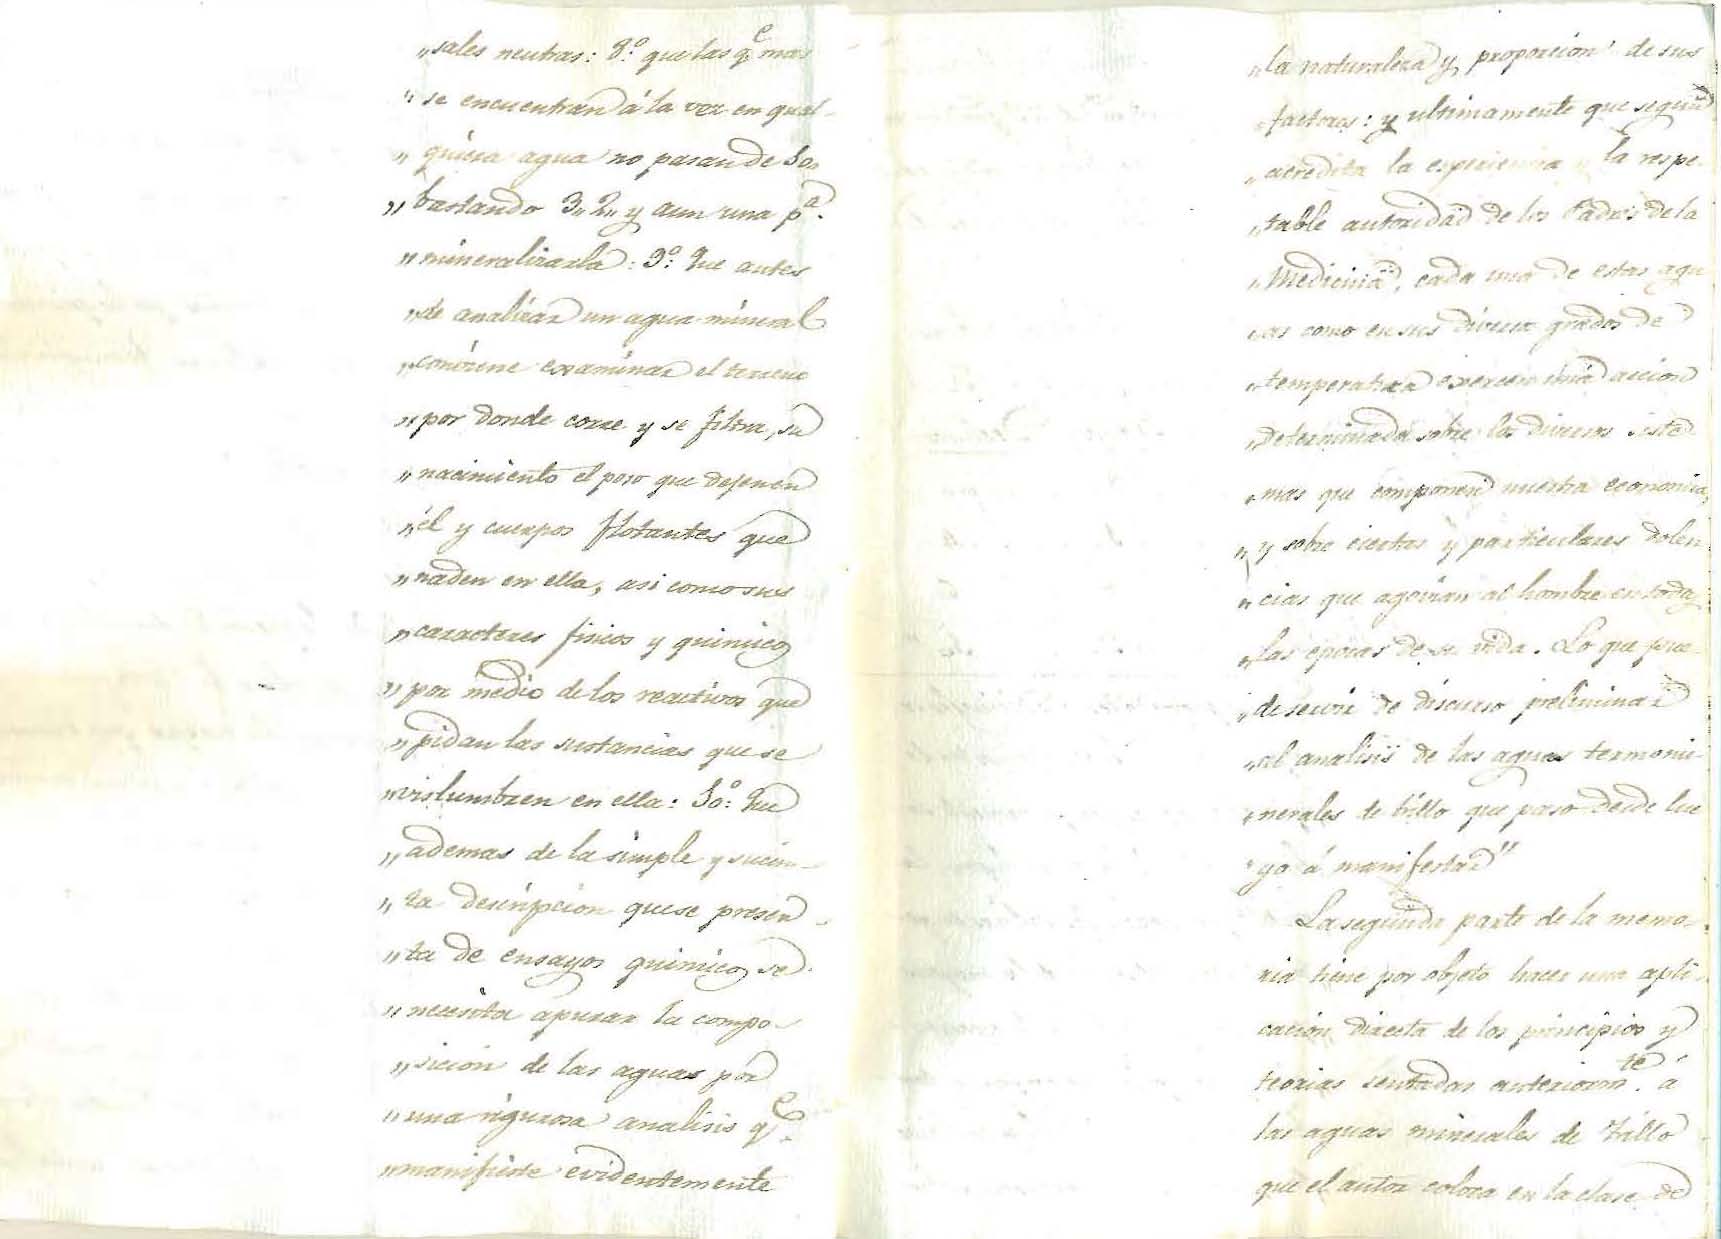 „sales neutras: 8.º que las q.e mas
„se encuentran á la vez en qual-
„quiera agua no pasan de 10„
„bastando 3„ 2„ y aun una p.a
„mineralizarla: 9.º: Que antes
„de analizar un agua mineral
„conviene examinar el terreno
„por donde corre y se filtra, su
„nacimiento el poso que deje en
„él y cuerpos flotantes que
„naden en ella, asi como sus
„caracteres fisicos y quimicos
„por medio de los reactivos que
„pidan las sustancias que se
„vislumbren en ella: 10.º: Que
„ademas de la simple y sucin-
„ta descripcion que se presen-
„ta de ensayos quimicos se
„necesita apurar la compo-
„sicion de las aguas por
„una rigurosa analisis q.e
„manifieste evidentemente
„la naturaleza y proporcion de sus
„factores: y ultimamente que segun
„acredita la experiencia y la respe-
„table autoridad de los Padres de la
„Medicina, cada una de estas agu
„as como en sus diversos grados de
„temperatura exercen una accion
„determinada sobre los diversos siste
„mas que componen nuestra economia,
„y sobre ciertas y particulares dolen
„cias que agovian al hombre en todas
„las epocas de su vida. Lo que pue-
„de servir de discurso preliminar
„al analisis de las aguas termomi-
„nerales de Trillo que paso desde lue
„go á manifestar"
La segunda parte de la memo-
ria tiene por objeto hacer una apli-
cacion directa de los principios y
teorias sentadas anteriorm.te á
las aguas minerales de Trillo
que el autor coloca en la clase de